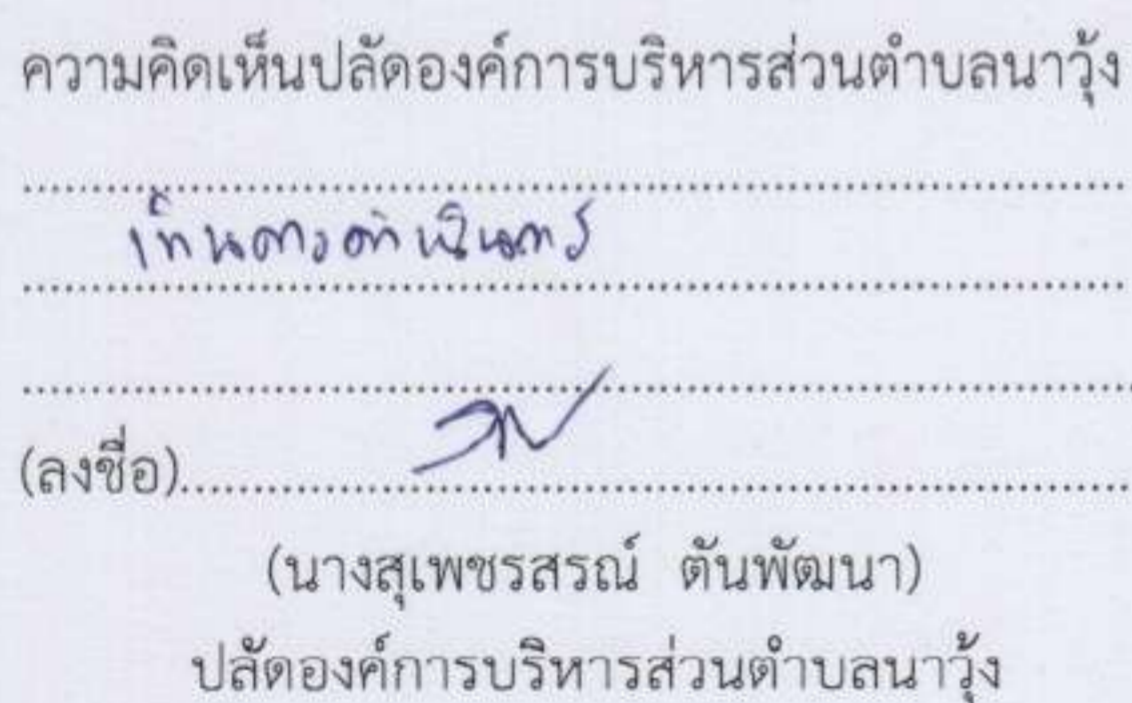 ความคิดเห็นปลัดองค์การบริหารส่วนตำบลนาวุ้ง
เห็นควรดำเนินการ
(ลงชื่อ)
(นางสุเพชรสรณ์ ตันพัฒนา)
ปลัดองค์การบริหารส่วนตำบลนาวุ้ง